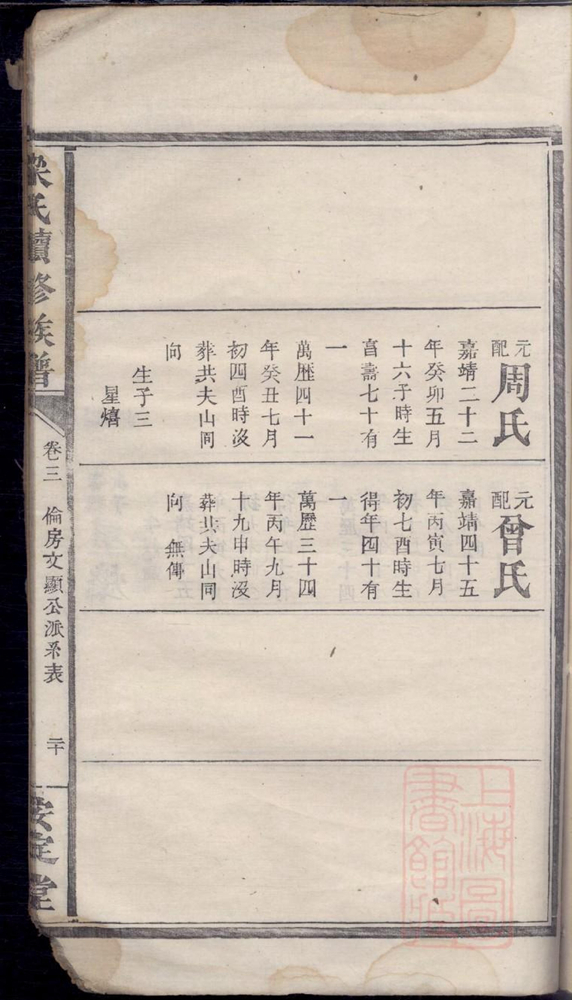 元配周氏
嘉靖二十二
年癸卯五月
十六子時生
亯壽七十有
一
萬歷四十一
年癸丑七月
初四酉時沒
葬共夫山同
向
生子三
星熺
元配曾氏
嘉靖四十五
年丙寅七月
初七酉時生
得年四十有
一
萬歷三十四
年丙午九月
十九申時沒
葬共夫山同
向 無傳
梁氏續修族譜
卷三 倫房文顯公派系表 二十
安定堂
上海圖書館藏